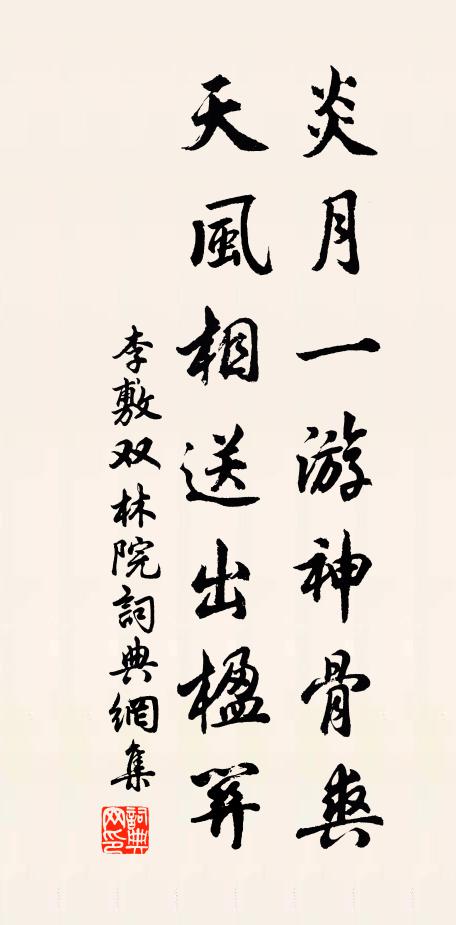 炎月一游神骨爽
天風相送出楹
李敷双林院詞典網集
詞典
网印